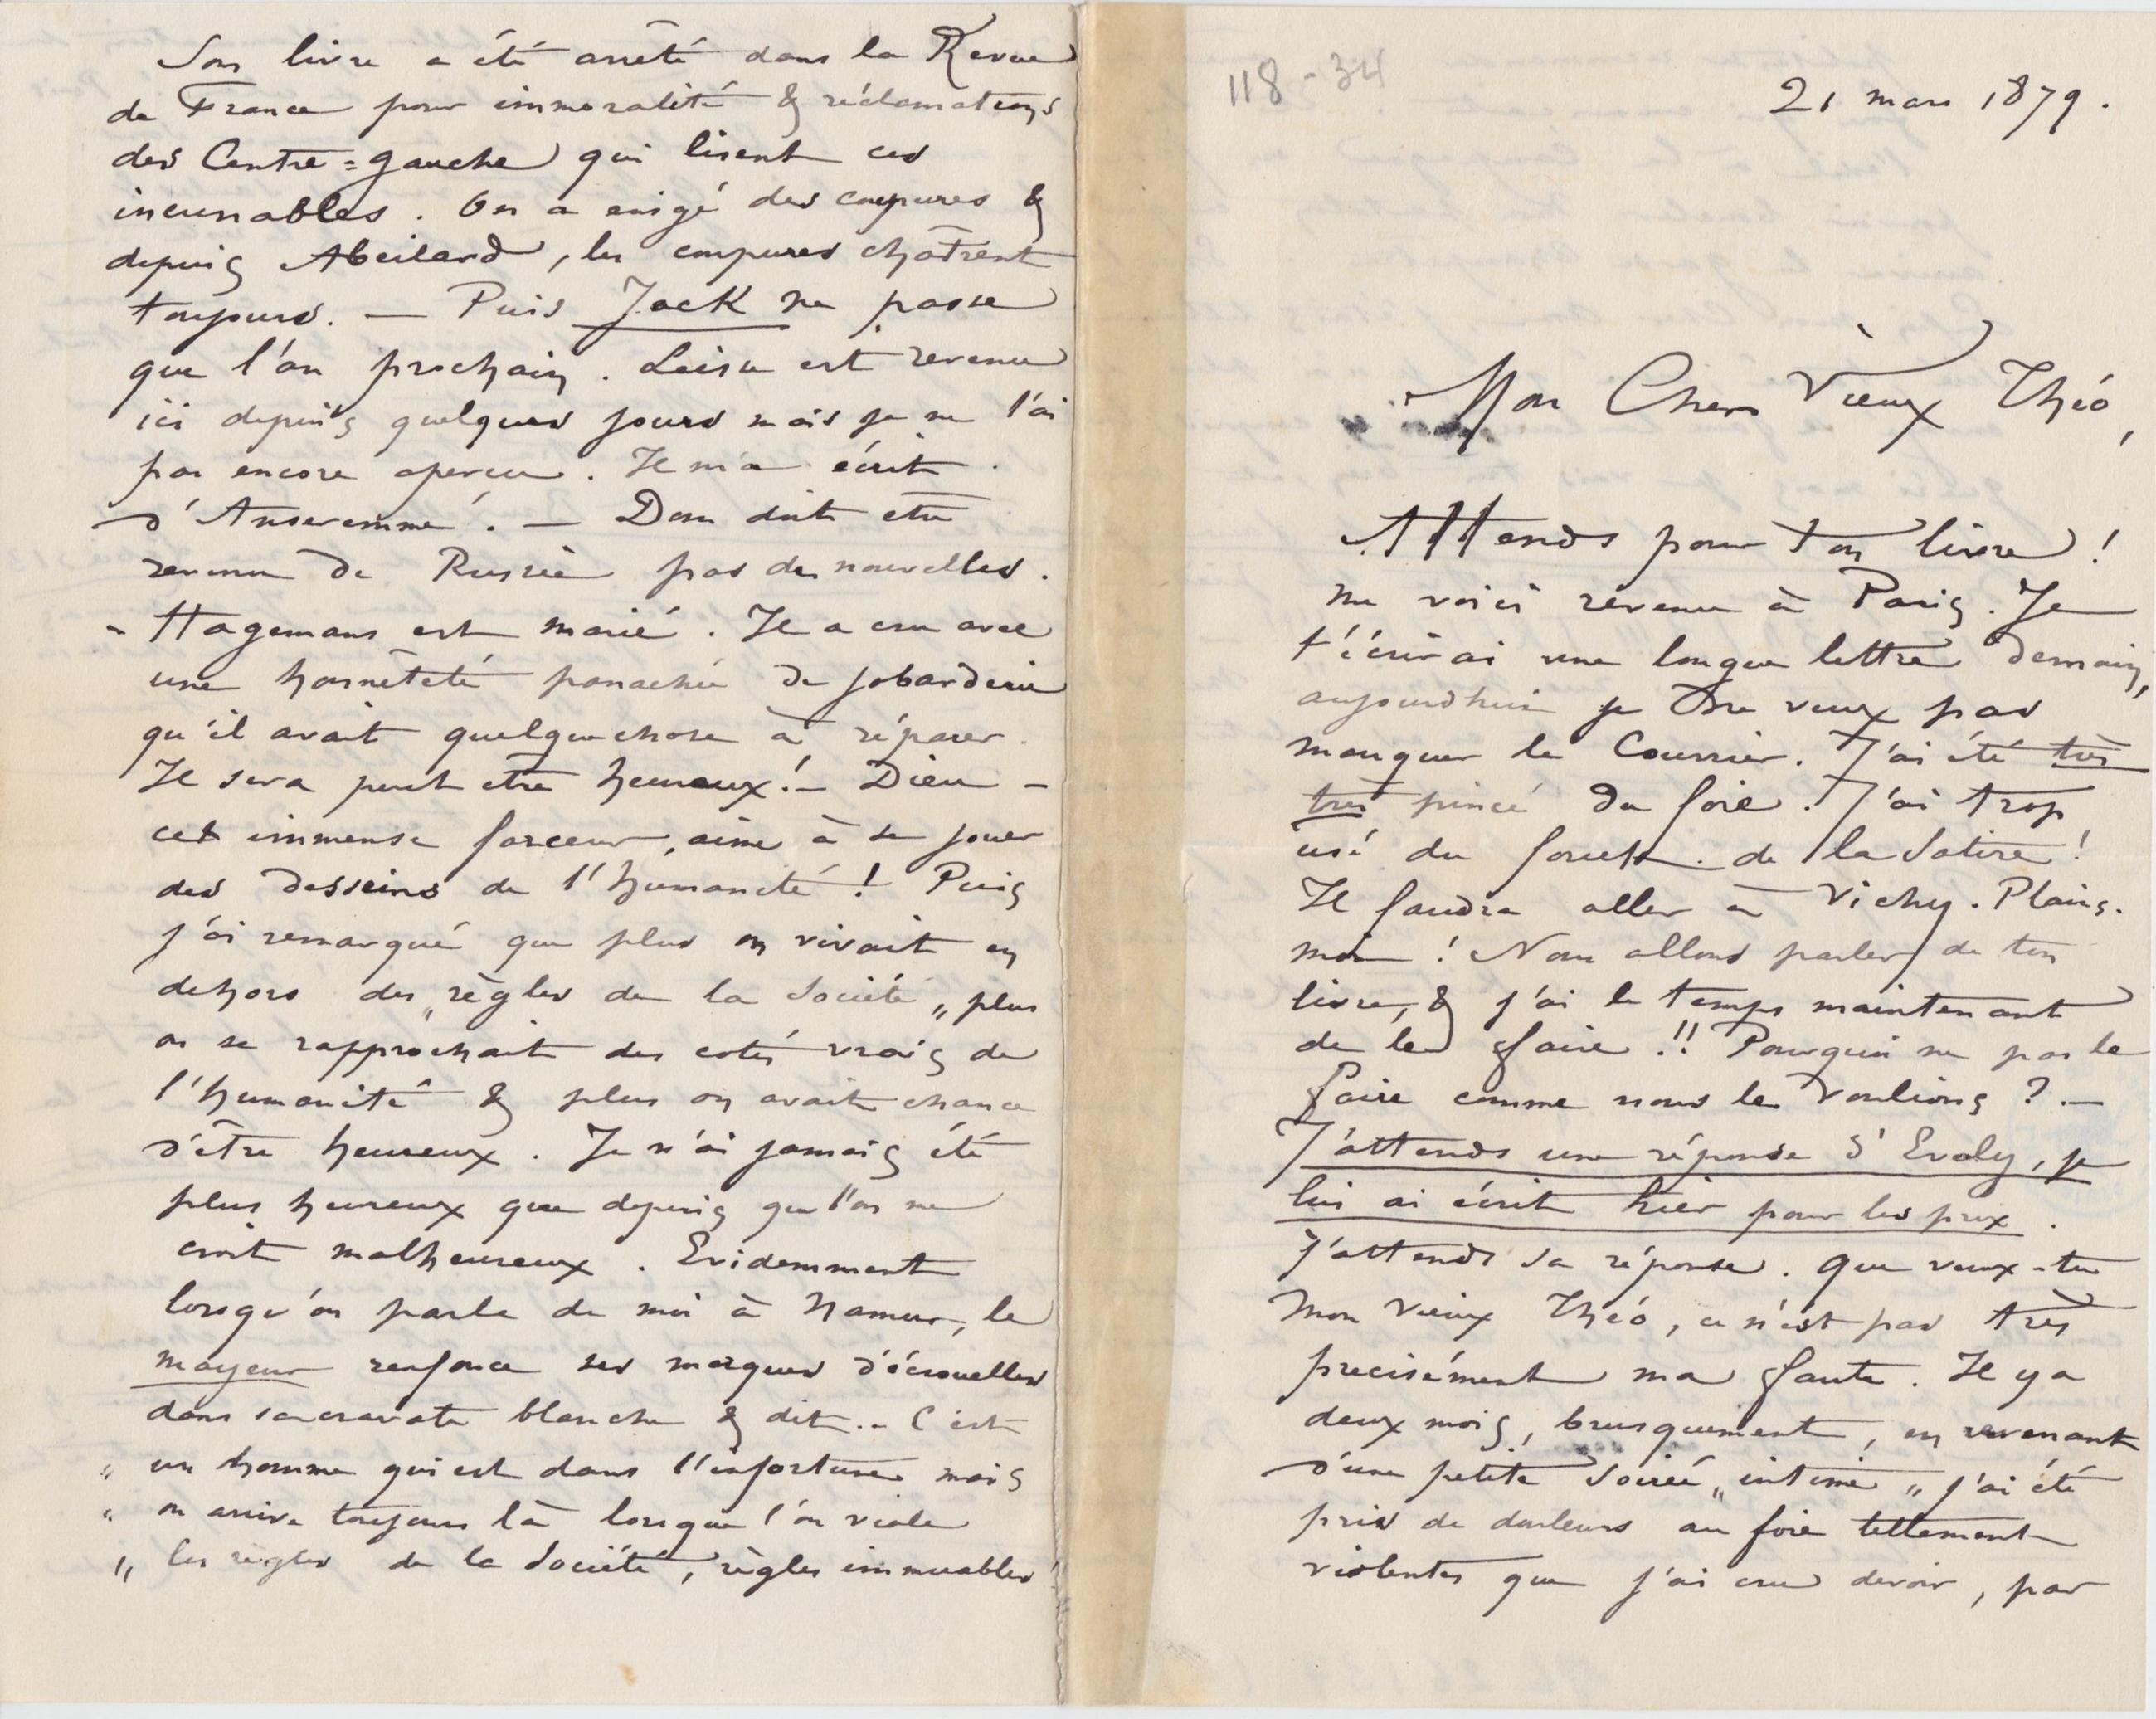 Son livre a été arrêté dans la Revue
de France pour immoralité & réclamations
des Centre=gauche qui lisent ces
incunables. On a exigé des coupures &
depuis Abeilard, les coupures châtrent
toujours. — Puis Jack ne passe
que l'an prochain. Leisu est revenu
ici depuis quelques jours mais je ne l'ai
pas encore aperçu. Il m'a écrit
d'Anseremme. — Dom doit etre
revenu de Russie pas de nouvelles.
- Hagemans est marié. Il a cru avec
une honnêteté panachée de jobarderie
qu'il avait quelque chose à réparer.
Il sera peut etre heureux! — Dieu -
cet immense farceur, aime à se jouer
des desseins de l'humanité! Puis
j'ai remarqué que plus on vivait en
dehors des „règles de la Société„ plus
on se rapprochait des cotés vrais de
l'humanité & plus on avait chance
d'être heureux. Je n'ai jamais été
plus heureux que depuis que l'on me
croit malheureux. Evidemment
lorsqu'on parle de moi à Namur, le
mayeur renfonce ses marques d'écrouelles
dans sa cravate blanche & dit.- C'est
„ un homme qui est dans l'infortune mais
„ on arrive toujours là lorsque l'on viole
„ les règles de la Société, règles immuables!
118-34
21 mars 1879.
Mon Cher Vieux Théo,
Attends pour ton livre!
me voici revenu à Paris. Je
t'écrirai une longue lettre demain,
aujourdhui je ne veux pas
manquer le Courrier. J'ai été très
très pincé du foie. J'ai trop
usé du fouet de la Satire!
Il faudra aller à Vichy. Plains-
moi! Nous allons parler de ton
livre, & j'ai le temps maintenant
de le faire!!! Pourquoi ne pas le
faire comme nous le voulions? —
J'attends une réponse d'Evely, je
lui ai écrit hier pour les prix.
J'attends sa réponse. Que veux-tu
mon vieux Théo, ce n'est pas très
precisément ma faute. Il y a
deux mois, brusquement, en revenant
d'une petite Soirée „intime„ j'ai été
pris de douleurs au foie tellement
violentes que j'ai cru devoir, par